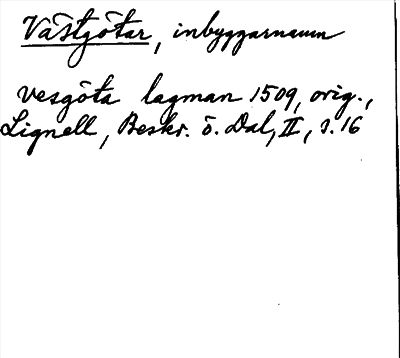 Västgötar, inbyggarnamn
vesgöta lagman 1509, orig.,
Lignell, Beskr. ö. Dal, II, s. 16